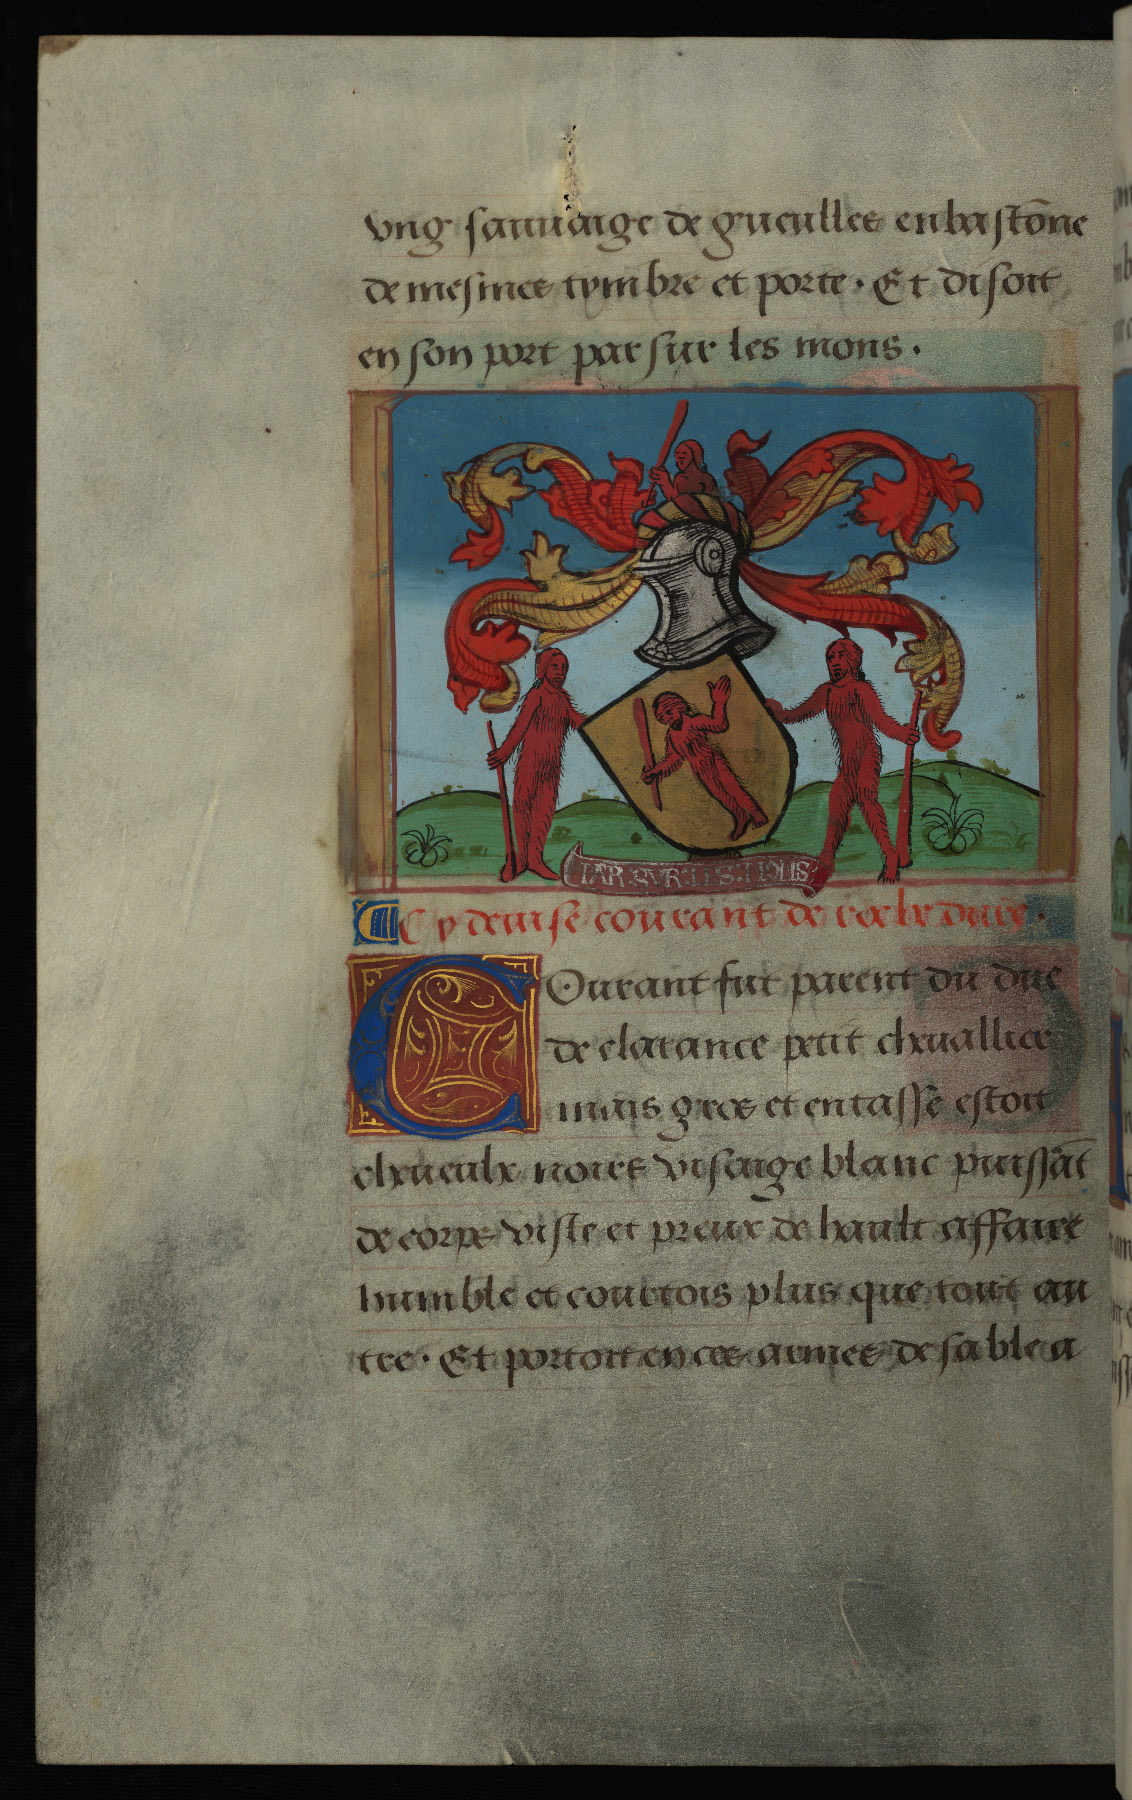 vng sauuaige de gueulles enbastōne
de mesmes tymbre et porte. Et disoit
en son port par sur les mons.
PAR·SVR·LES·MONS
Cy deuise courant de rocheduře.
Courant fut parent du duc
de clarance petit cheuallier
mais gros et entasse estoit
cheueulx noirs visaige blanc puissāt
de corps viste et preux de hault affaire
humble et courtois plus que tout au
tre. Et portoit en ces armes de sable a